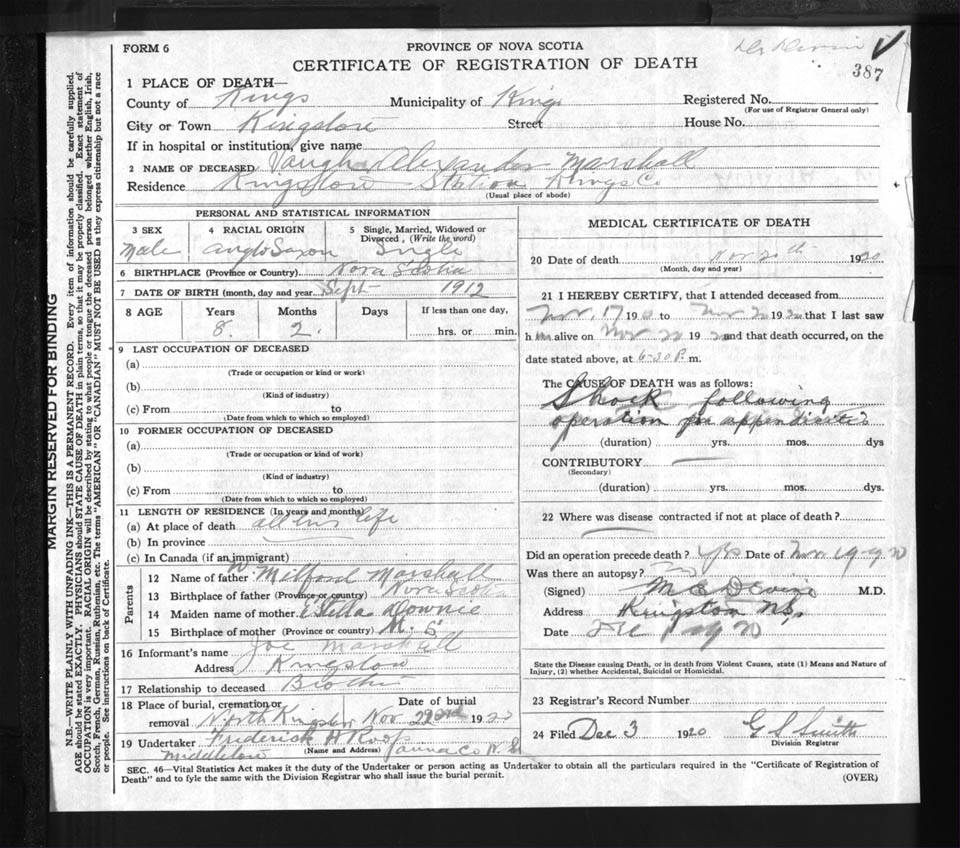 FORM 6
PROVINCE OF NOVA SCOTIA
CERTIFICATE OF REGISTRATION OF DEATH
387
1 PLACE OF DEATH—
County of Kings Municipality of Kings Registered No.
(For use of Registrar General only)
City or Town Kingston Street House No.
If in hospital or institution, give name
2 NAME OF DECEASED Vaughn Alexander Marshall
Residence Kingston Station Kings Co
(Usual place of abode)
PERSONAL AND STATISTICAL INFORMATION
3 SEX 4 RACIAL ORIGIN 5 Single, Married, Widowed or Divorced, (Write the word)
Male Anglo Saxon Single
6 BIRTHPLACE (Province or Country) Nova Scotia
7 DATE OF BIRTH (month, day and year) Sept 1912
8 AGE Years Months Days If less than one day,
8 2 hrs. or min.
9 LAST OCCUPATION OF DECEASED
(a)
(Trade or occupation or kind or work)
(b)
(Kind of industry)
(c) From to
(Date from which to which so employed)
10 FORMER OCCUPATION OF DECEASED
(a)
(Trade or occupation or kind of work)
(b)
(Kind of industry)
(c) From to
(Date from which to which so employed)
11 LENGTH OF RESIDENCE (In years and months)
(a) At place of death all his life
(b) In province
(c) In Canada (if an immigrant)
Parents
12 Name of father Milford Marshall
13 Birthplace of father (Province or country) Nova Scotia
14 Maiden name of mother Estella Downie
15 Birthplace of mother (Province or country) N. S
16 Informant's name Joe Marshall
Address Kingston
17 Relationship to deceased Brother
18 Place of burial, cremation or removal Date of burial
North Kingston Nov 22nd 1920
19 Undertaker Frederick H Roop
(Name and Address)
Middleton Anna Co N. S
MEDICAL CERTIFICATE OF DEATH
20 Date of death Nov 20th 1920
(Month, day and year)
21 I HEREBY CERTIFY, that I attended deceased from
Nov. 17 1920 to Nov 20 1920 that I last saw
him alive on Nov 20 1920 and that death occurred, on the
date stated above, at 6-30 P. m.
The CAUSE OF DEATH was as follows:
Shock following
operation for appendicitis
(duration) yrs. mos. dys
CONTRIBUTORY
(Secondary)
(duration) yrs. mos. dys.
22 Where was disease contracted if not at place of death?
Did an operation precede death? Yes Date of Nov 19 1920
Was there an autopsy?
(Signed) M.D.
Address Kingston N.S.
Date
State the Disease causing Death, or in death from Violent Causes, state (1) Means and Nature of Injury, (2) whether Accidental, Suicidal or Homicidal.
23 Registrar's Record Number
24 Filed Dec 3 1920 G S Smith
Division Registrar
SEC. 46—Vital Statistics Act makes it the duty of the Undertaker or person acting as Undertaker to obtain all the particulars required in the "Certificate of Registration of
Death" and to fyle the same with the Division Registrar who shall issue the burial permit.
(OVER)
MARGIN RESERVED FOR BINDING
N.B.—WRITE PLAINLY WITH UNFADING INK—THIS IS A PERMANENT RECORD. Every item of information should be carefully supplied.
AGE should be stated EXACTLY. PHYSICIANS should STATE CAUSE OF DEATH in plain terms, so that it may be properly classified. Exact statement of
OCCUPATION is very important. RACIAL ORIGIN will be described by stating to what people or tongue the deceased person belonged whether English, Irish,
Scotch, French, German, Russian, Ruthenian, etc. The terms "AMERICAN" OR "CANADIAN" MUST NOT BE USED as they express citizenship but not a race
or people. See instructions on back of Certificate.